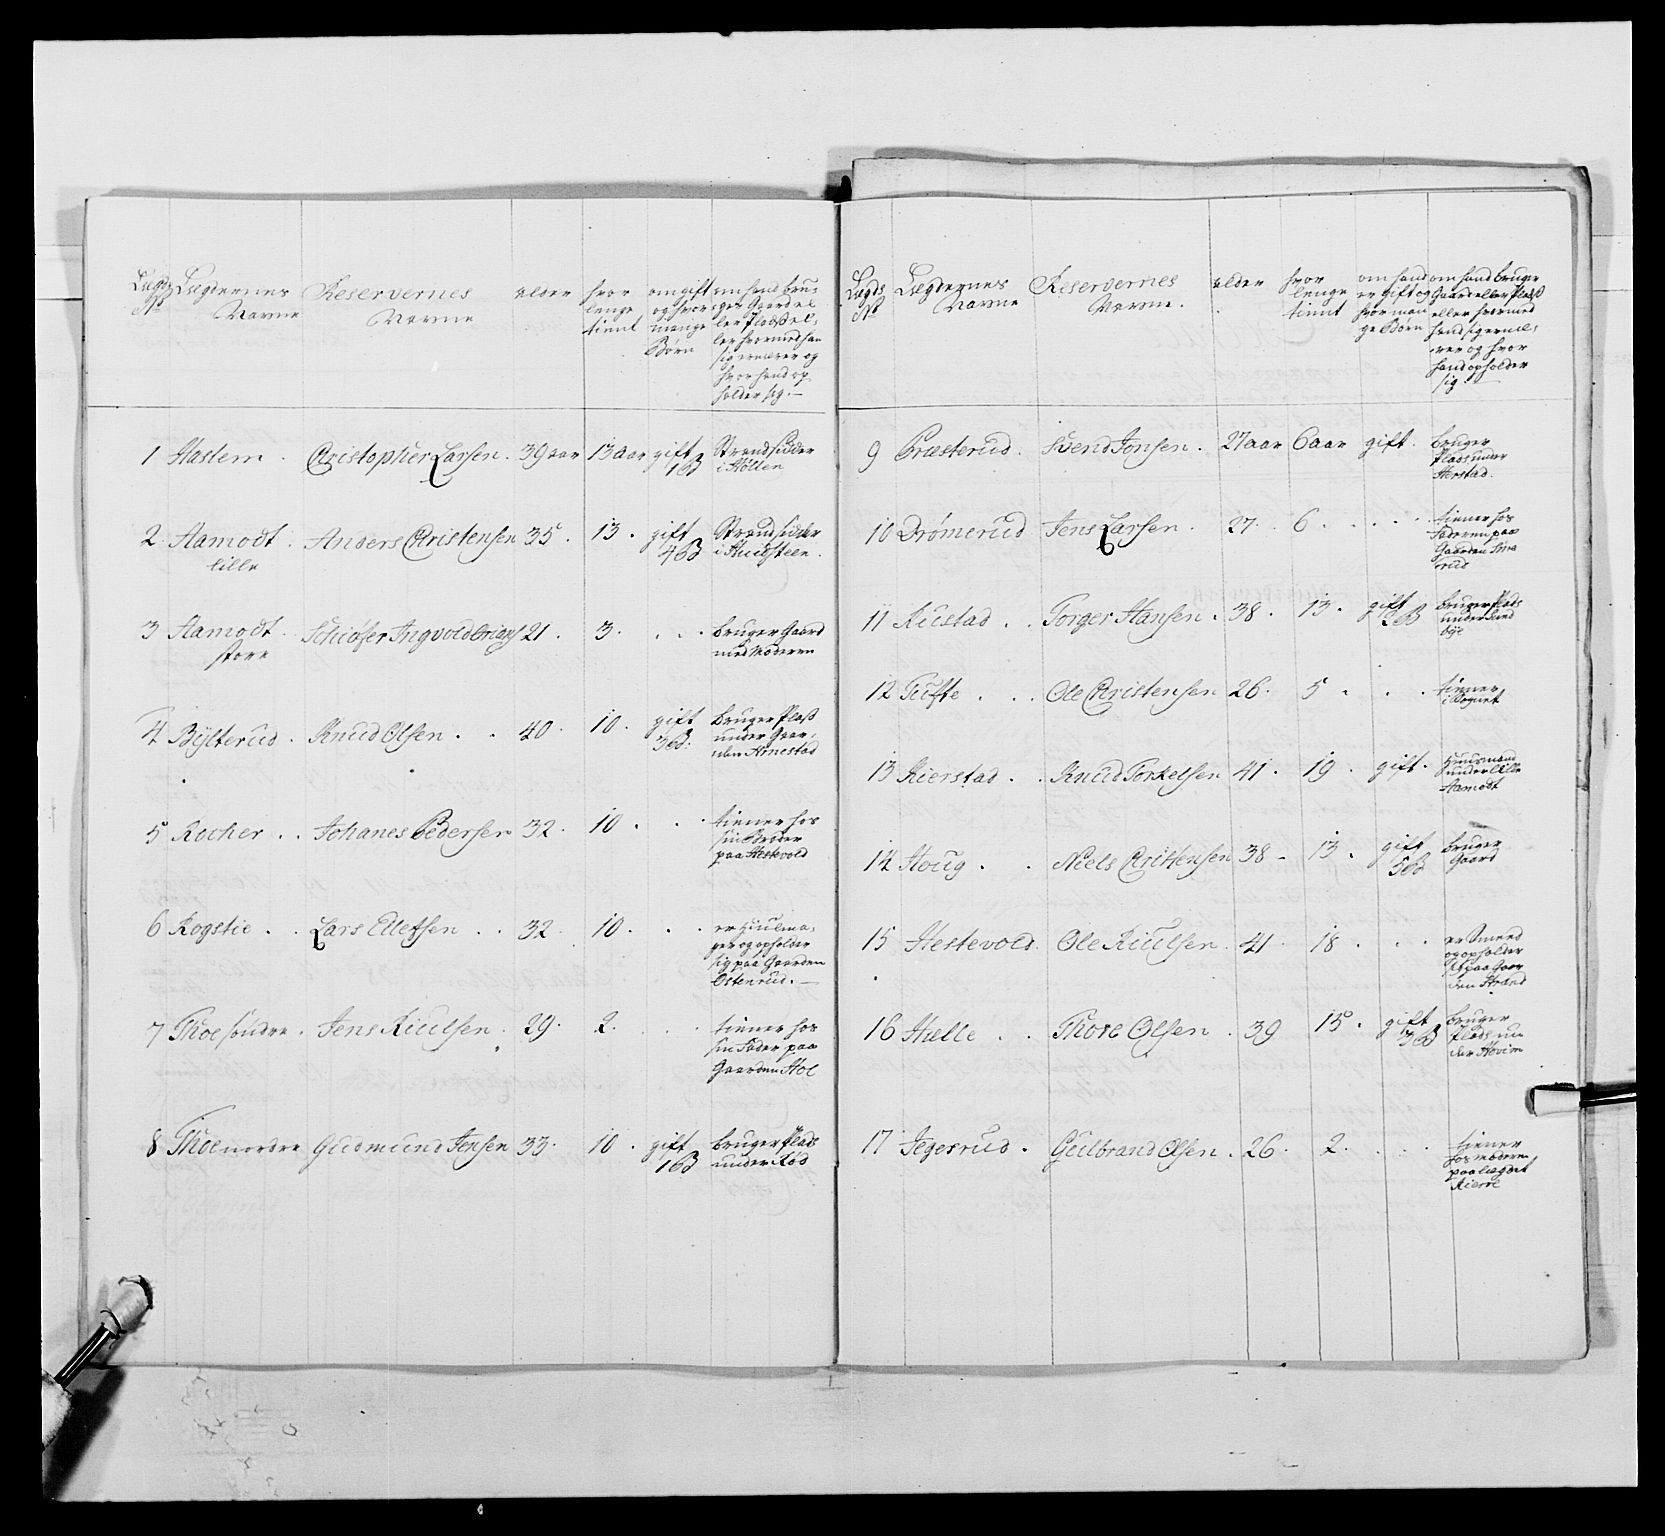 Lægds No Lægdernes Navne Reservernes Navne alder hvor lenge tient om gift og hvor mange Børn om hand bruger Gaard eller Pladß eller hvormed han sig ernærer og hvor hand opholder sig.
1 Haslem . Christopher Larsen . 39 aar 13 aar gift 1 B Strandsidder i Holten
2 Aamodt lille . Anders Christensen 35 . 13 . gift 4 B Strandsidder i
3 Aamodt store . Ingvold 21 . 3 . . . . bruger Gaard med Moderen
4 Bylterud . Knud Olsen . . 40 . 10 . gift 3 B: bruger Plaß under Gaarden Arnestad
5 Rocher . . Johanes Pedersen 32 . 10 . . . tiener hos sin Broder paa Hestevold
6 Rogstie . . Lars Ellefsen . . 32 . 10 . . . er Hiulmager og opholder sig paa Gaarden Ostenrud . —
7 Thoe søndre . Jens Kiulsen . 29 . 2 . . . tiener hos sin Fader paa Gaarden Hoe
8 Thoe nordre Gudmund Jensen 33 . 10 . gift 1 B bruger Plads under Rød
Lægds No Lægdernes Navne Reservernes Navne . alder hvor lenge tient om hand er gift og hvor mange Børn om hand bruger Gaard eller Pladß eller hvormed hand sig ernærer og hvor hand opholder sig . —
9 Præsterud . Svend Jonsen . 27 aar 6 aar gift . bruger Plads under Herstad .
10 Drømerud Jens Larsen . 27 . 6 . . . . . tiener hos Faderen paa Gaarden
11 Rustad . . Torger Hansen . 38 . 13 . gift 2 B bruger Plads under Sundbye
12 Tufte . . . Ole Christensen 26 . 5 . . . tiener i Sognet
13 Kierstad . . Knud Torkelsen 41 . 19 . gift . Huusmand under Lille Aamodt
14 Houg . . Niels Christensen 38 . 13 . gift 5 B bruger Gaard
15 Hestevold . Ole Kiulsen . 41 . 18 . . . er Smeed og opholder sig paa Gaarden Strand
16 Halle . . Thore Olsen . 39 15 . gift 3 B bruger Plads under Hovim
17 Jegesrud . Gulbrand Olsen . 26 . 2 . . . . tiener hos Moderen paa Lægdet Kierre